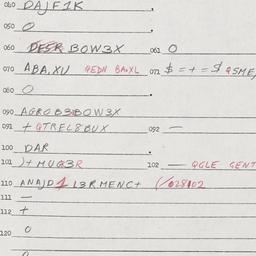 040 DAJF1K .
050 O .
060 DESR BOW3X 061 O
070 ABA,XU QEDN BAWXL 071 $ = + = $ QSME,
080 O .
090 AGROB3BOW3X
091 + QTREL8BUX 092 —
100 DAR .
101 )+ MUG3R 102 — QGLE GENT
110 ANAJD 1 L3RMENC+ (/028102
111 —
112 +
120 O